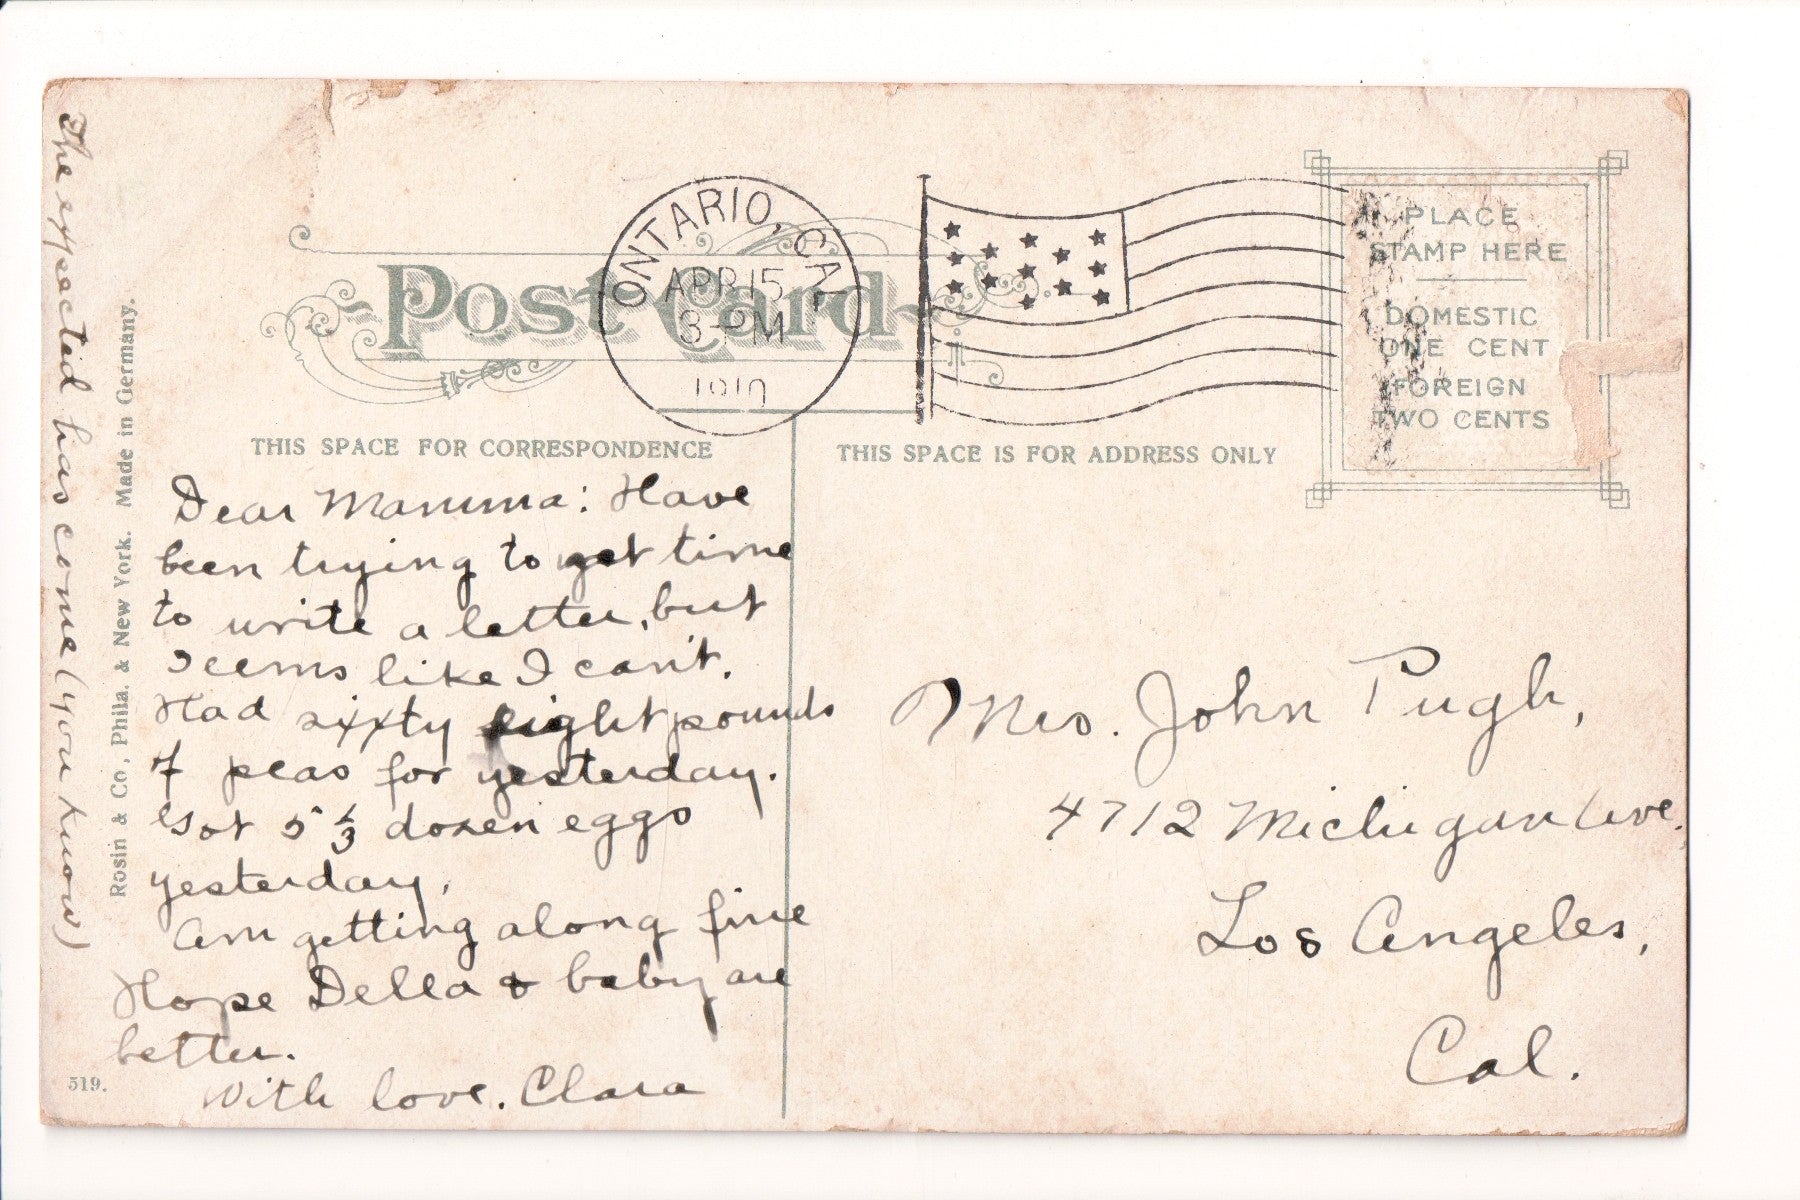 ONTARIO, CAL
APR 15
3-PM
1910
Post Card
PLACE
STAMP HERE
DOMESTIC
ONE CENT
FOREIGN
TWO CENTS
THIS SPACE FOR CORRESPONDENCE
THIS SPACE IS FOR ADDRESS ONLY
Dear Mamma: Have
been trying to get time
to write a letter, but
seems like I can't.
Had sixty eight pounds
of peas for yesterday.
Got 5 1/3 dozen eggs
yesterday,
Am getting along fine
Hope Della & baby are
better.
With love. Clara
The expected has come (you know)
Rosin & Co, Phila. & New York. Made in Germany.
519.
Mrs. John Pugh,
4712 Michigan Ave.
Los Angeles,
Cal.